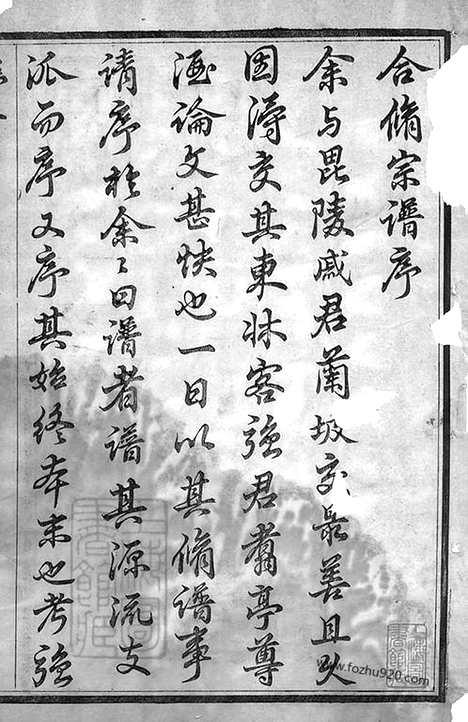 合脩宗譜序
余与毘陵戚君蘭坡交最善且久
因淂交其東牀客強君肅亭尊
酒論文甚快也一日以其脩譜事
請序於余余曰譜者譜其源流支
派而序又序其始終本末也考強
www.fozhu920.com